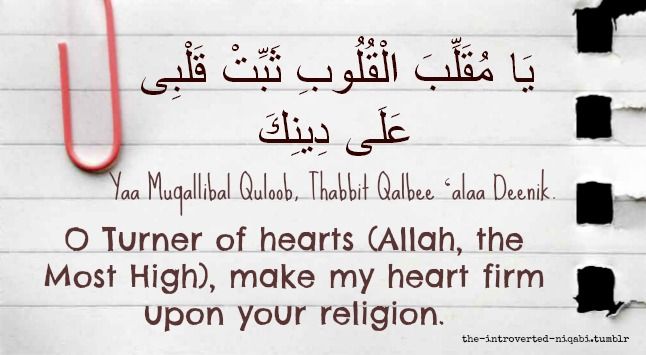 يَا مُقَلِّبَ الْقُلُوبِ ثَبِّتْ قَلْبِى
عَلَى دِينِكَ
Yaa Muqallibal Quloob, Thabbit Qalbee ‘alaa Deenik.
O Turner of hearts (Allah, the
Most High), make my heart firm
upon your religion.
the-introverted-niqabi.tumblr